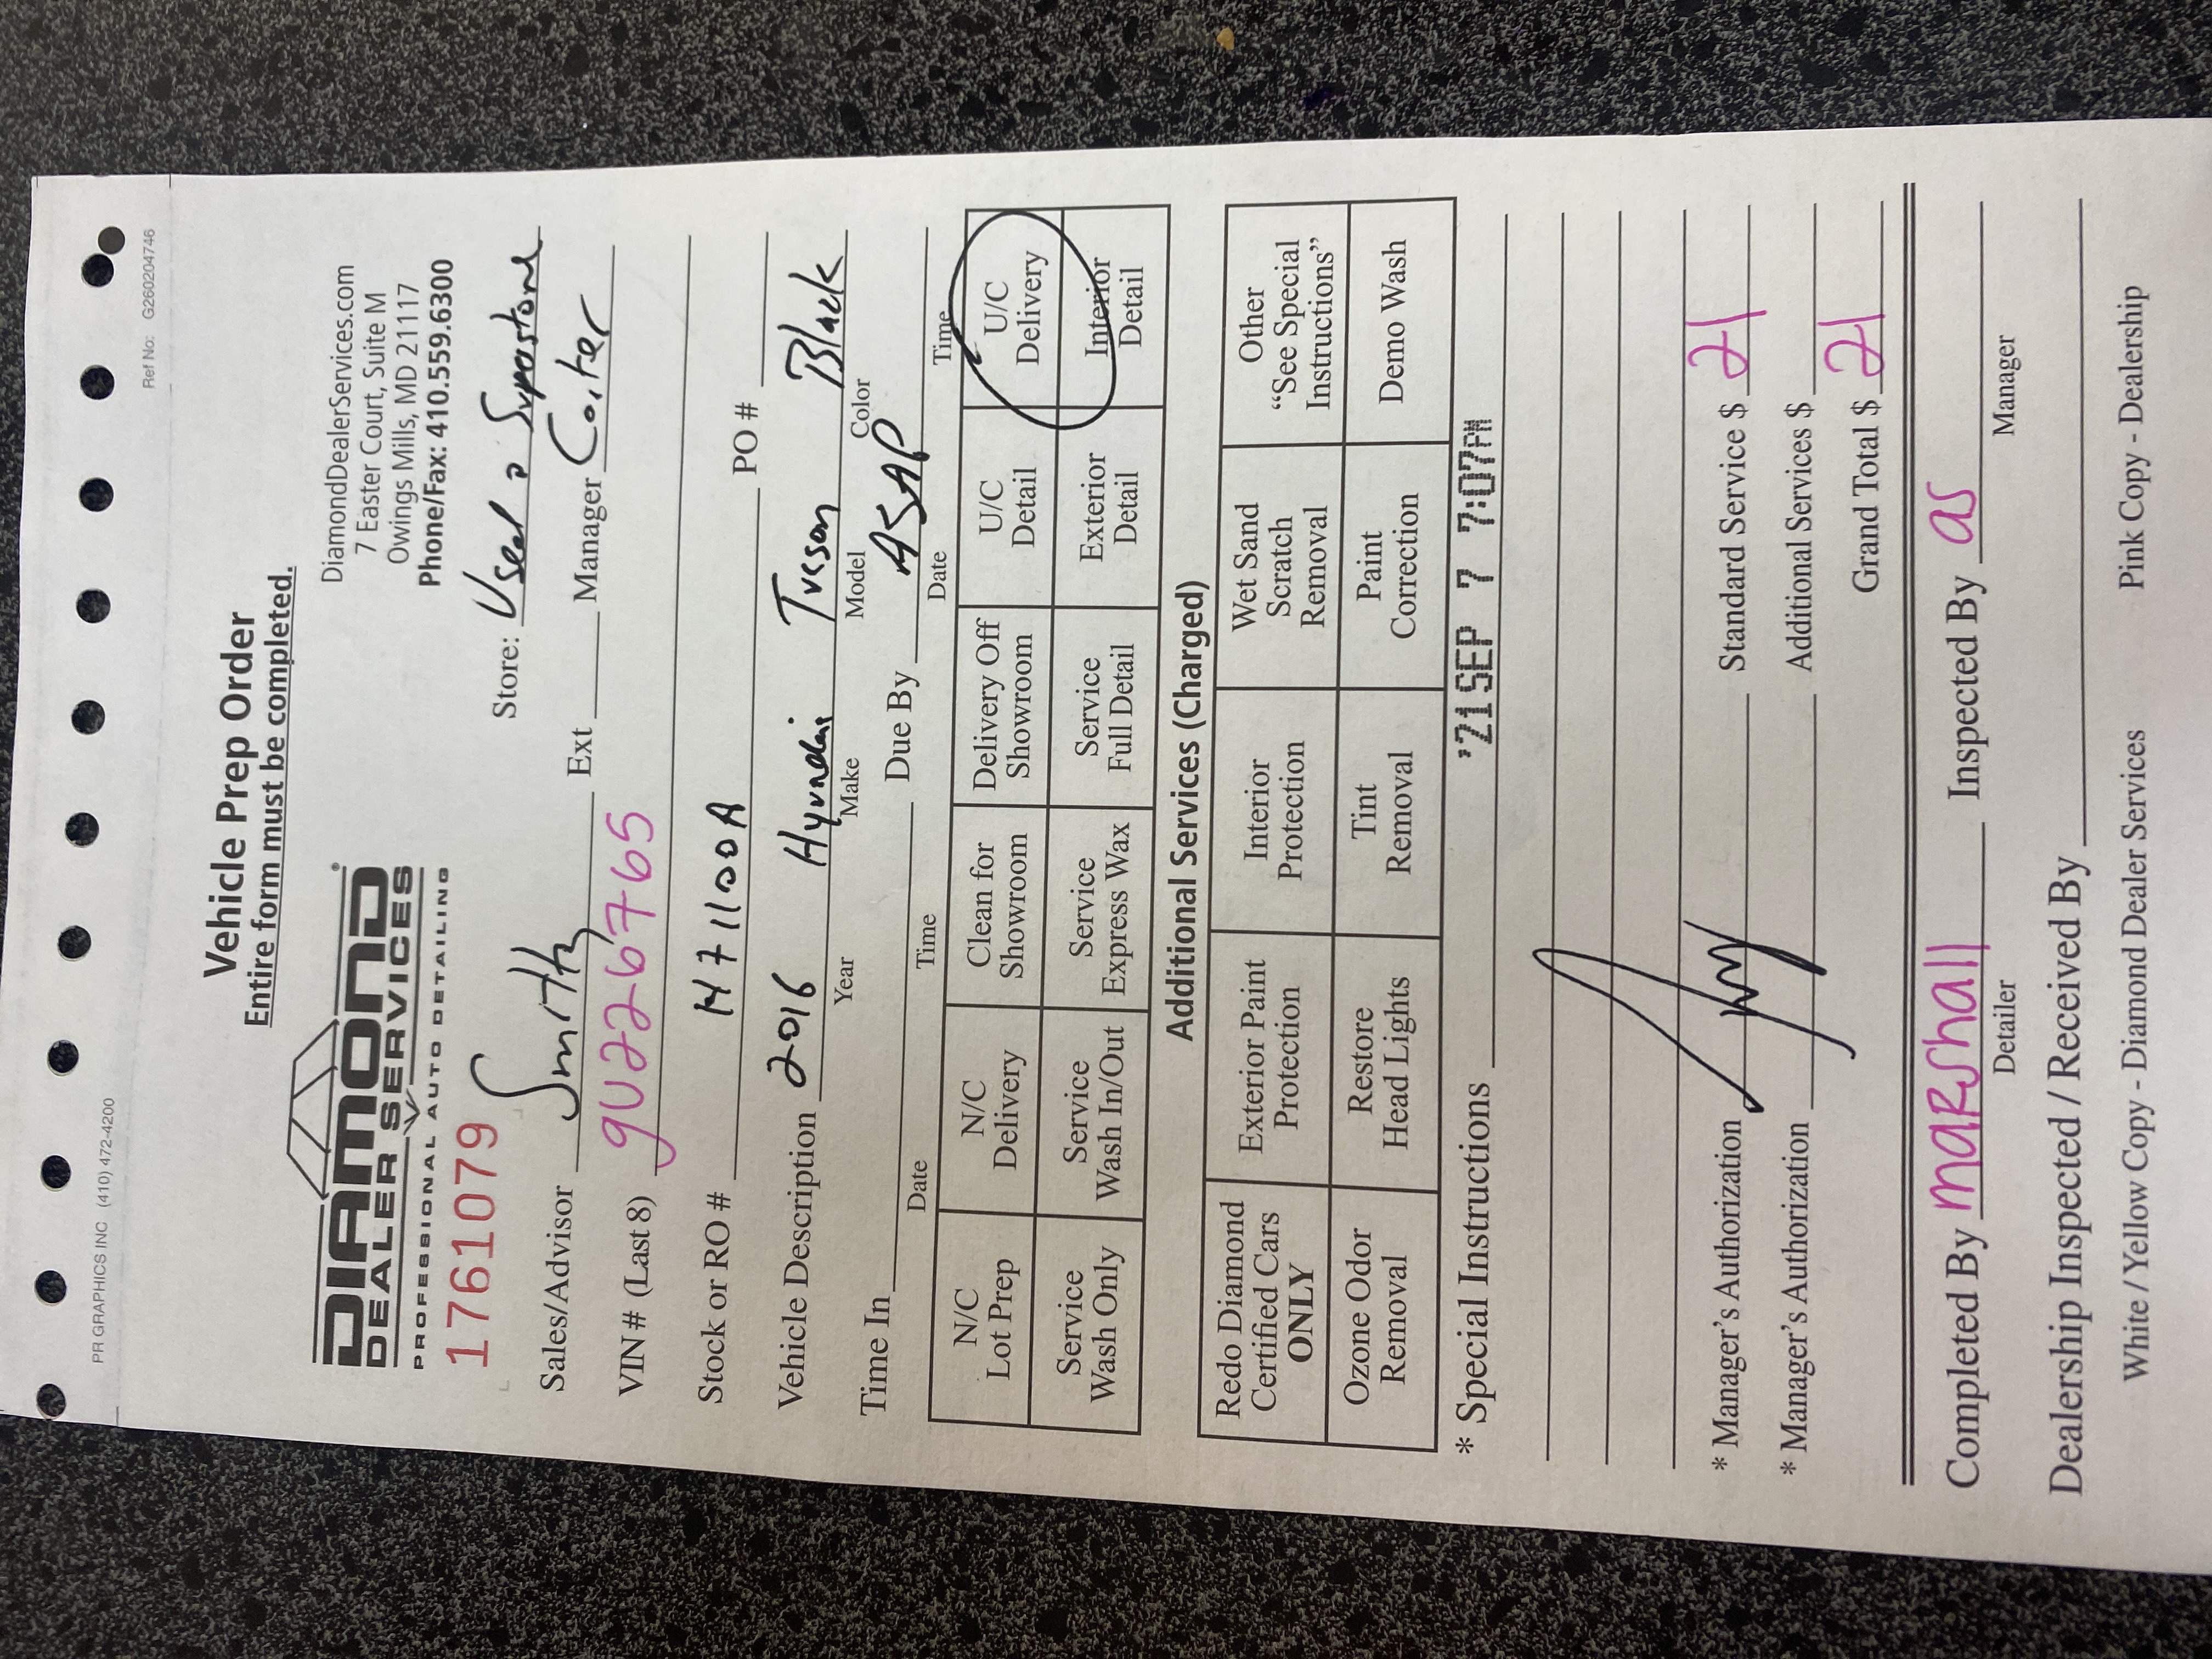 PR GRAPHICS INC (410) 472-4200
Ref No: G260204746
Vehicle Prep Order
Entire form must be completed.
DIAMOND®
DEALER SERVICES
PROFESSIONAL AUTO DETAILING
DiamondDealerServices.com
7 Easter Court, Suite M
Owings Mills, MD 21117
Phone/Fax: 410.559.6300
1761079
Store: Used
Sales/Advisor Smith Ext Manager Carter
VIN # (Last 8) gU226765
Stock or RO # H71100A PO #
Vehicle Description 2016 Hyundai Tucson Black
Year Make Model Color
Time In Due By ASAP
Date Time Date Time
N/C Lot Prep N/C Delivery Clean for Showroom Delivery Off Showroom U/C Detail U/C Delivery
Service Wash Only Service Wash In/Out Service Express Wax Service Full Detail Exterior Detail Interior Detail
Additional Services (Charged)
Redo Diamond Certified Cars ONLY Exterior Paint Protection Interior Protection Wet Sand Scratch Removal Other "See Special Instructions"
Ozone Odor Removal Restore Head Lights Tint Removal Paint Correction Demo Wash
* Special Instructions '21 SEP 7 7:07PM
* Manager's Authorization Standard Service $ 21
* Manager's Authorization Additional Services $
Grand Total $ 21
Completed By Marshall Inspected By as
Detailer Manager
Dealership Inspected / Received By
White / Yellow Copy - Diamond Dealer Services Pink Copy - Dealership